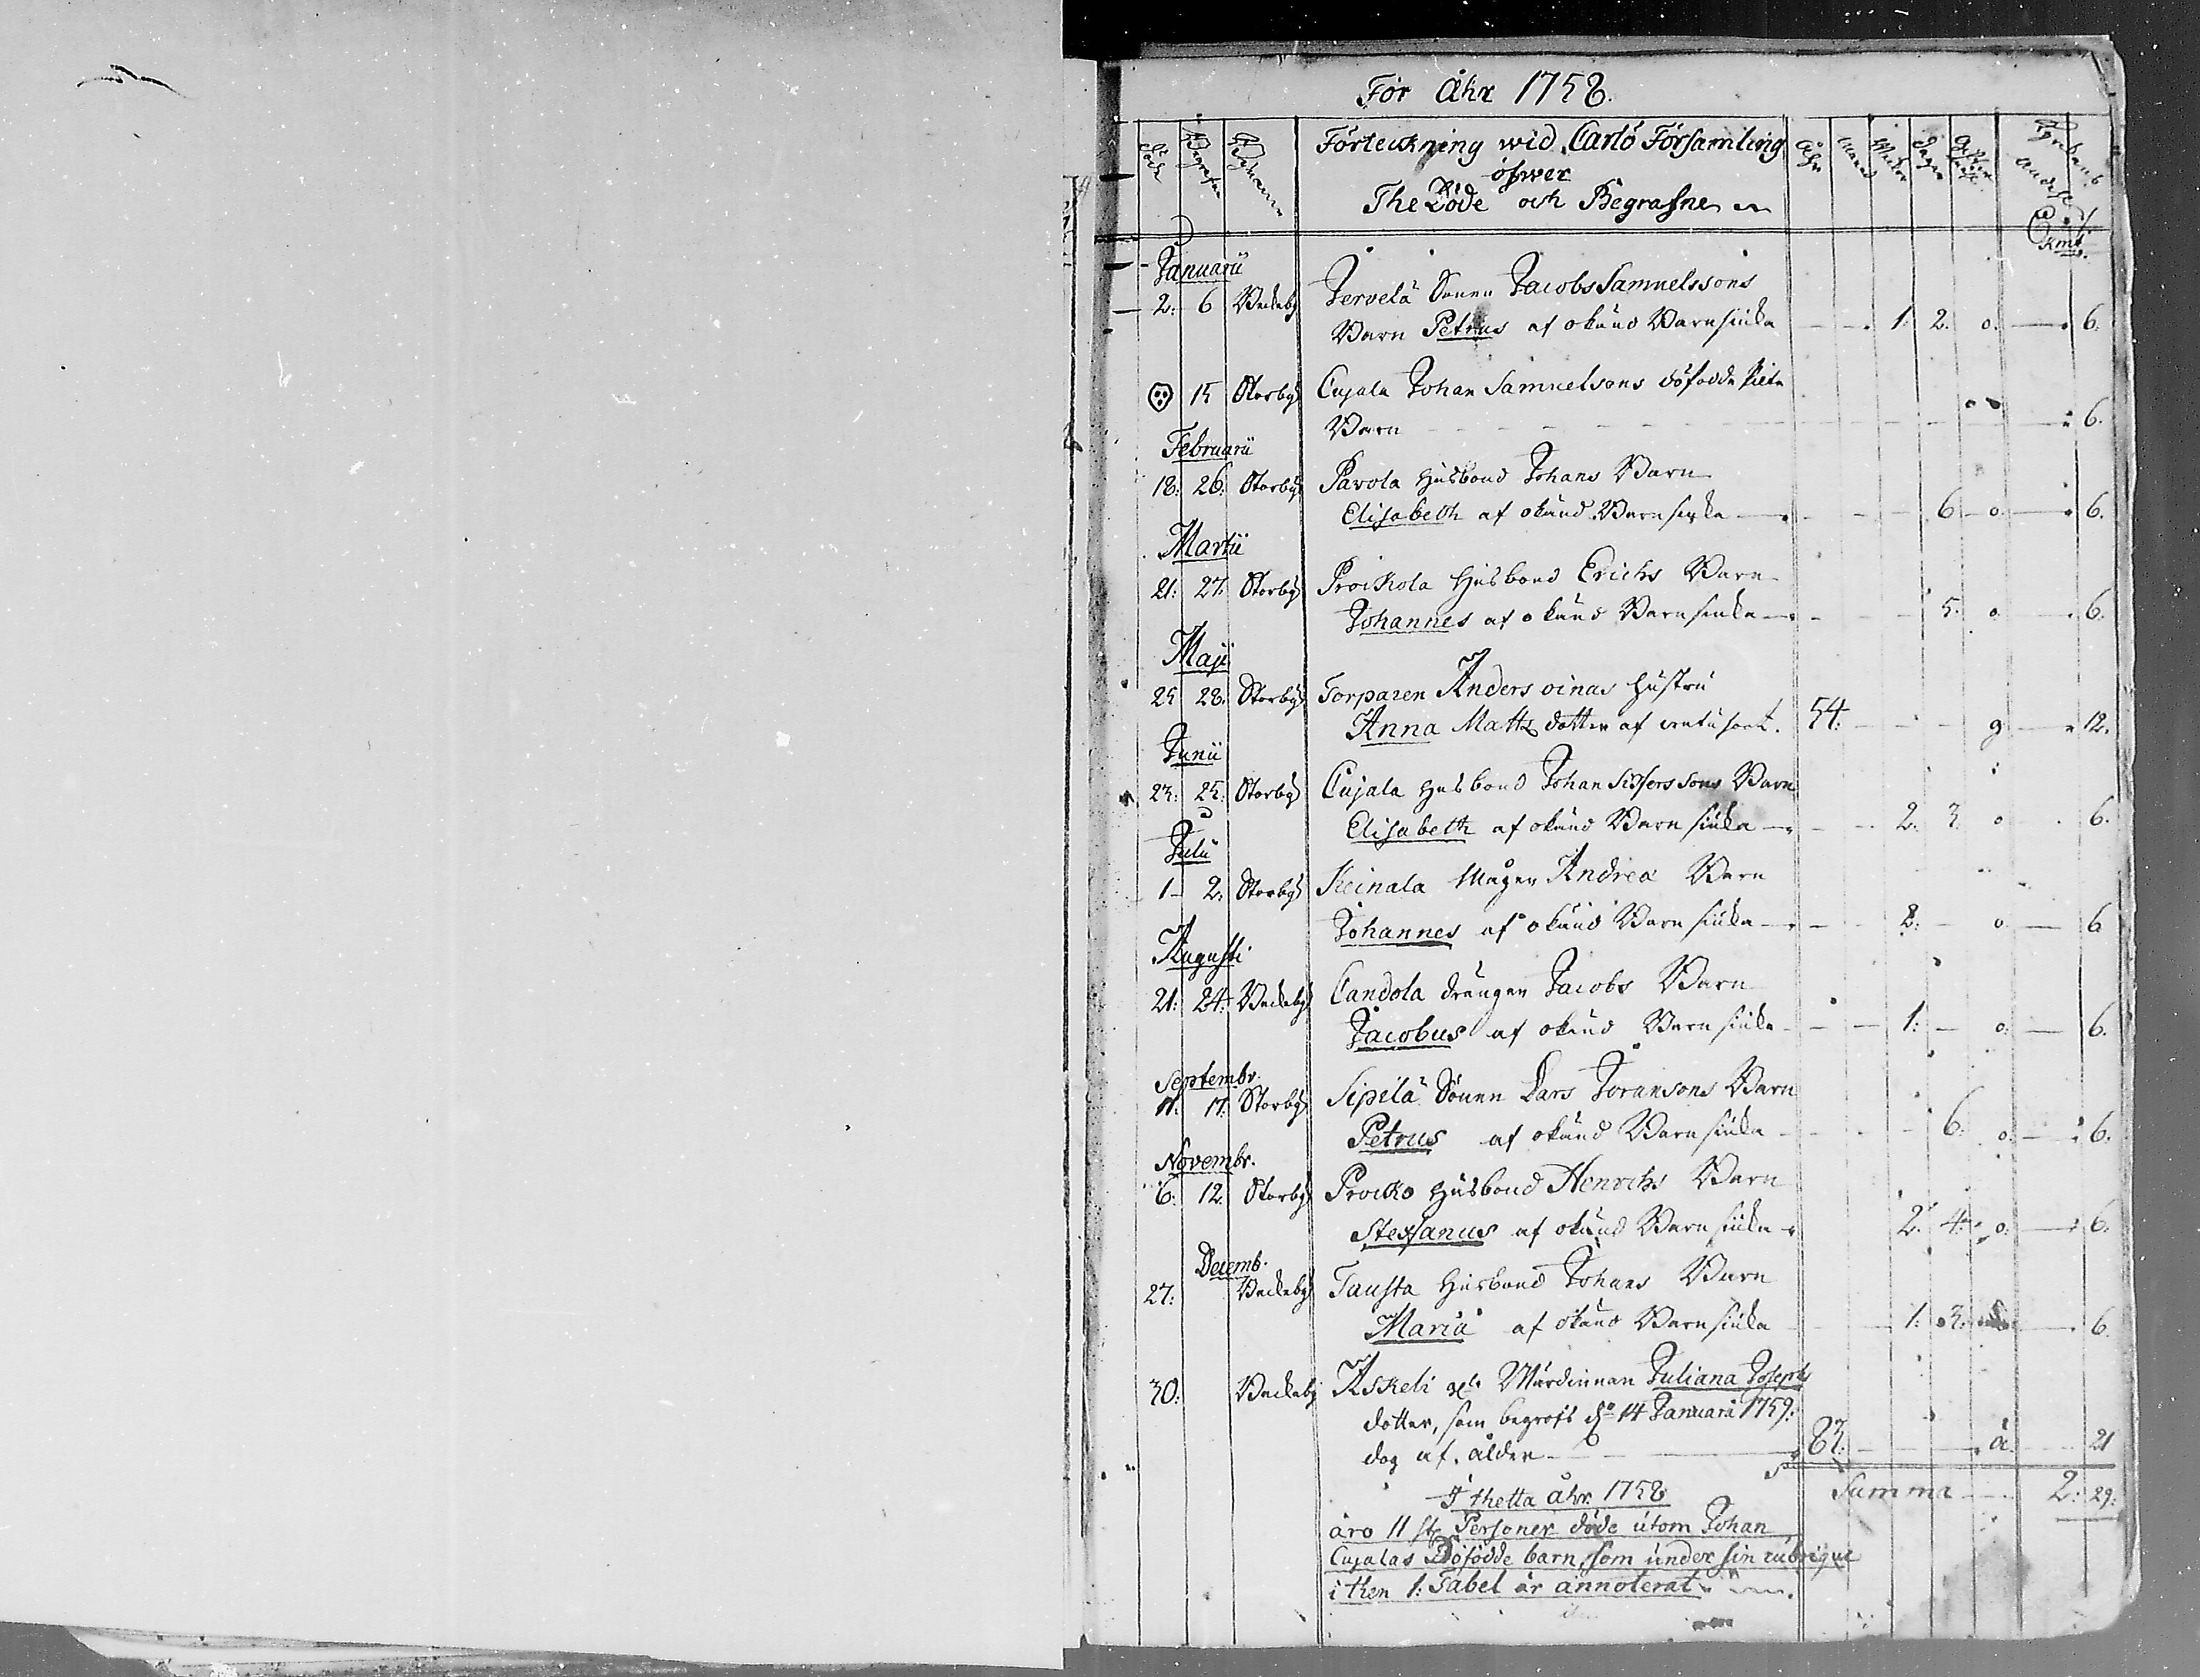 För Åhr 1758.
Död Begrafne Bynamn Förteckning wid Carlö Församling Åhr Månad Wekor Dagar Kyrkans
öfwer
The Döde och Begrafne
Kmt.
Januarii
2: 6 Backaby Jervelä Sonen Jacobs Samuelssons
Barn Petrus af okänd Barnsiuka 1: 2. o. 6.
15 Storby Cujala Johan Samuelsons döfödda
Barn 6.
Februarii
18: 26: Storby Pavola Husbond Johans Barn
Elisabeth af okänd Barnsiuka 6 o. 6.
Martii
21: 27. Storby Proikola Husbond Erichs Barn
Johannes af okänd Barnsiuka 5. o. 6.
Maji
25 28. Storby Torparen Anders oinas Hustru
Anna Matts dotter af 54: g 12.
Junii
23: 25: Storby Cujala Husbond Johan Sigfrssons Barn
Elisabeth af okänd Barnsiuka 2. 3. o 6.
Julii
1 2. Storby Keinala Mågen Andrea Barn
Johannes af okänd Barnsiuka 2: o. 6
Augusti
21: 24: Backaby Candola drängen Jacobs Barn
Jacobus af okänd Barnsiuka 1: o. 6.
Septembr.
11. 17. Storby Sipilä Sonen Lars Joransons Barn
Petrus af okänd Barnsiuka 6. o. 6.
Novembr.
6. 12. Storby Proiko Husbond Henrichs Barn
Steffanus af okänd Barnsiuka 2. 4. o. 6.
Decemb.
27: Backaby Tausta Husbond Johans Barn
Maria af okänd Barnsiuka 1: 3. 6.
30: Backaby Askeli Wärdinnan Juliana Josephs
dotter, som begrofs d. 14 Januarii 1759:
dog af ålder 83. å. 21
Summa 2: 29:
I thetta åhr 1758
äro 11 st. Personer döde utom Johan
Cujalas Döfödde barn, som under sin rubrique
i then 1: Tabel är annoterat